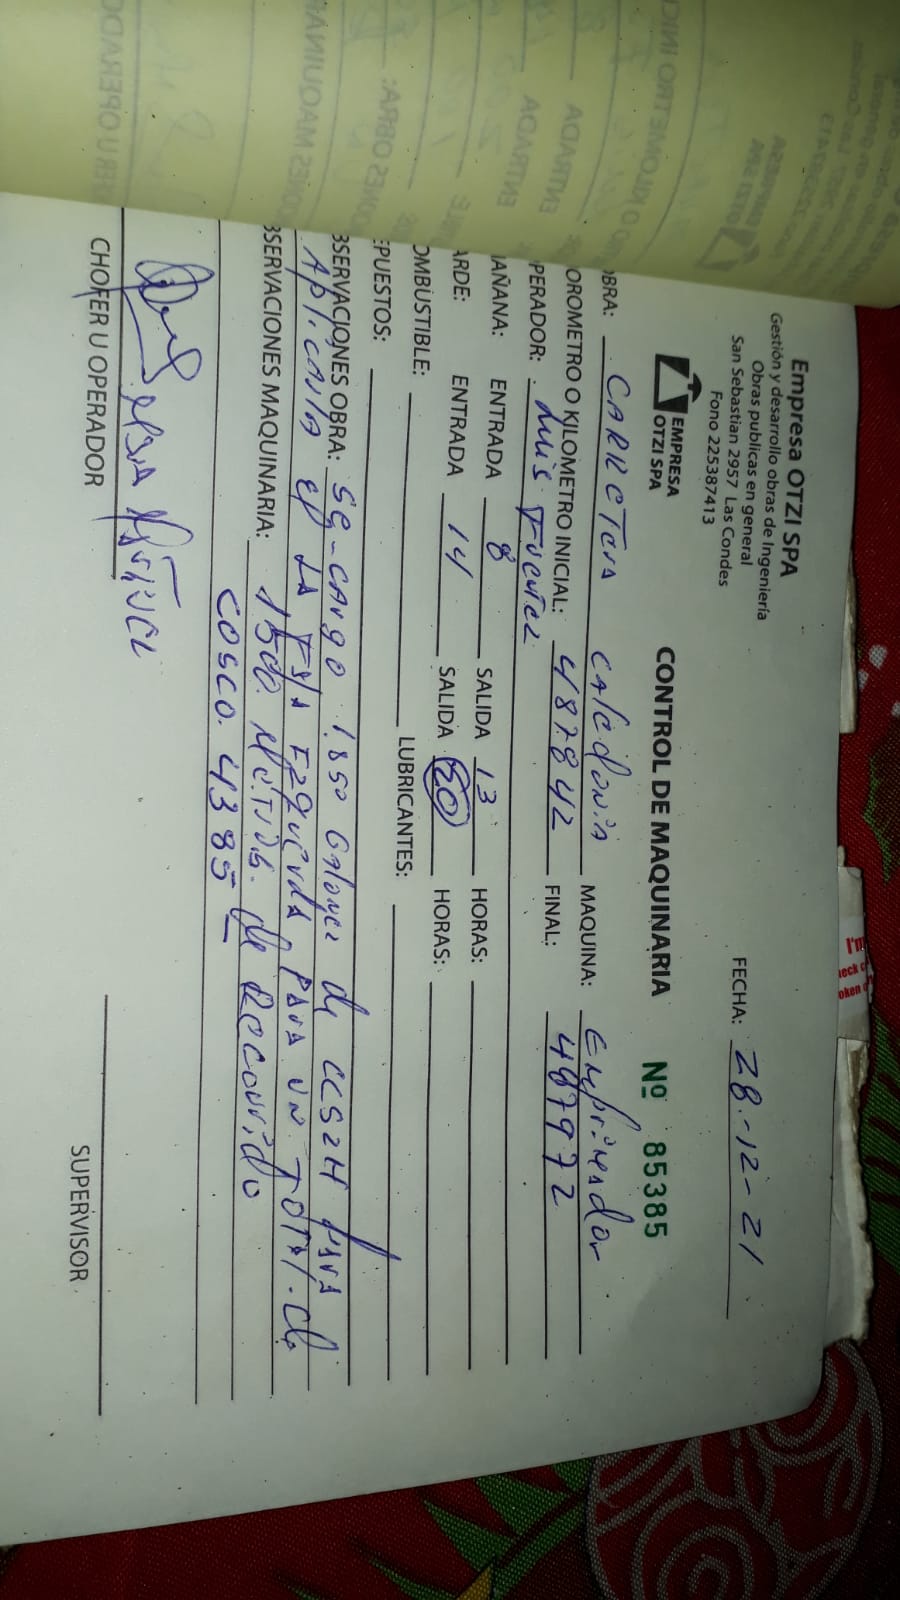 Empresa OTZI SPA
Gestión y desarrollo obras de Ingeniería
Obras publicas en general
San Sebastian 2957 Las Condes
Fono 225387413
FECHA: 28.-12-21
EMPRESA
OTZI SPA
CONTROL DE MAQUINARIA Nº 85385
OBRA: CARRETERA CALEDONIA MAQUINA: EMprimador
OROMETRO O KILOMETRO INICIAL: 487842 FINAL: 487972
PERADOR: Luis Fuentez
AÑANA: ENTRADA 8 SALIDA 13 HORAS:
ARDE: ENTRADA 14 SALIDA 20 HORAS:
OMBUSTIBLE: LUBRICANTES:
EPUESTOS:
BSERVACIONES OBRA: SE-CArgo 1.850 Galonez de CCS2H para
Aplicarla el LA FAJA IZquerda PARA UN TOTAL.de
BSERVACIONES MAQUINARIA: 1500. Metros. de Recorrido
COSCO. 4385 -
CHOFER U OPERADOR
SUPERVISOR